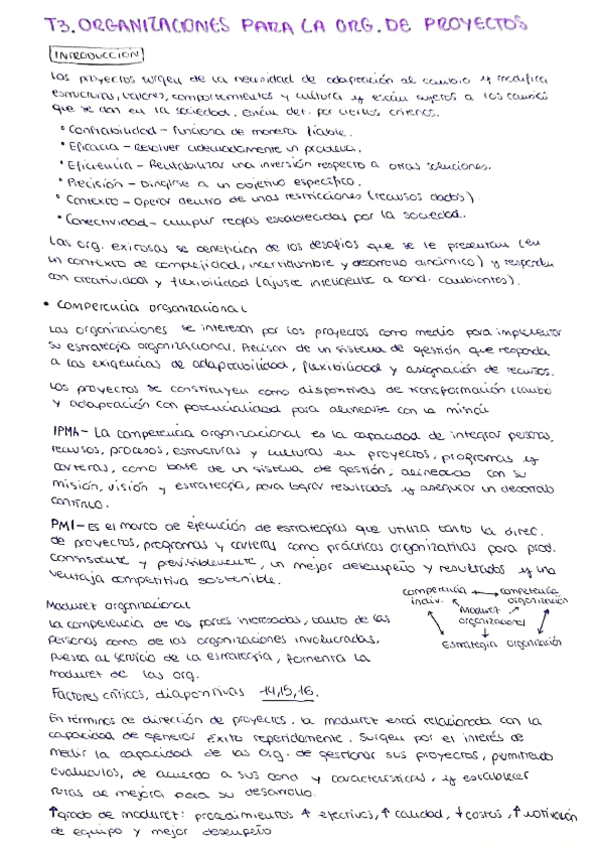 T3. ORGANIZACIONES PARA LA ORG. DE PROYECTOS
INTRODUCCIÓN
Los proyectos surgen de la necesidad de adaptación al cambio y modifica
estructuras, valores, comportamientos y cultura y están sujetos a los cambios
que se dan en la sociedad. Están det. por ciertos criterios.
• Confiabilidad - Funciona de manera fiable.
• Eficacia - Resolver adecuadamente un problema.
• Eficiencia - Rentabilizar una inversión respecto a otras soluciones.
• Precisión - Dirigirse a un objetivo específico.
• Contexto - Operar dentro de unas restricciones (recursos dados)
• Conectividad - cumplir reglas establecidas por la sociedad.
Las org. exitosas se benefician de los desafíos que se le presentan (en
un contexto de complejidad, incertidumbre y desarrollo dinámico) y responden
con creatividad y flexibilidad (ajuste inteligente a cond. cambiantes).
• Competencia organizacional
Las organizaciones se interesan por los proyectos como medio para implementar
su estrategia organizacional. Precisan de un sistema de gestión que responda
a las exigencias de adaptabilidad, flexibilidad y asignación de recursos.
Los proyectos se constituyen como dispositivos de transformación (cambio
y adaptación con potencialidad para alinearse con la misión
IPMA - La competencia organizacional es la capacidad de integrar personas,
recursos, procesos, estructuras y culturas en proyectos, programas y
carteras, como base de un sistema de gestión, alineados con su
misión, visión y estrategia, para lograr resultados y asegurar un desarrollo
continuo.
PMI - Es el marco de ejecución de estrategias que utiliza tanto la direc.
de proyectos, programas y carteras como prácticas organizativas para prod.
consistente y previsiblemente, un mejor desempeño y resultados y una
ventaja competitiva sostenible.
competencia indiv. ↔ competencia organización
Madurez organizacional
Estrategia organización
Madurez organizacional
La competencia de las partes interesadas, tanto de las
personas como de las organizaciones involucradas,
puesta al servicio de la estrategia, fomenta la
madurez de las org.
Factores críticos, diapositivas 14, 15, 16.
En términos de dirección de proyectos, la madurez está relacionada con la
capacidad de generar éxito repetidamente. Surgen por el interés de
medir la capacidad de las org. de gestionar sus proyectos, permitiendo
evaluarlos, de acuerdo a sus cond y características, y establecer
rutas de mejora para su desarrollo.
↑grado de madurez: procedimientos ↑ efectivos, ↑ calidad, ↓ costos, ↑ motivación
de equipo y mejor desempeño